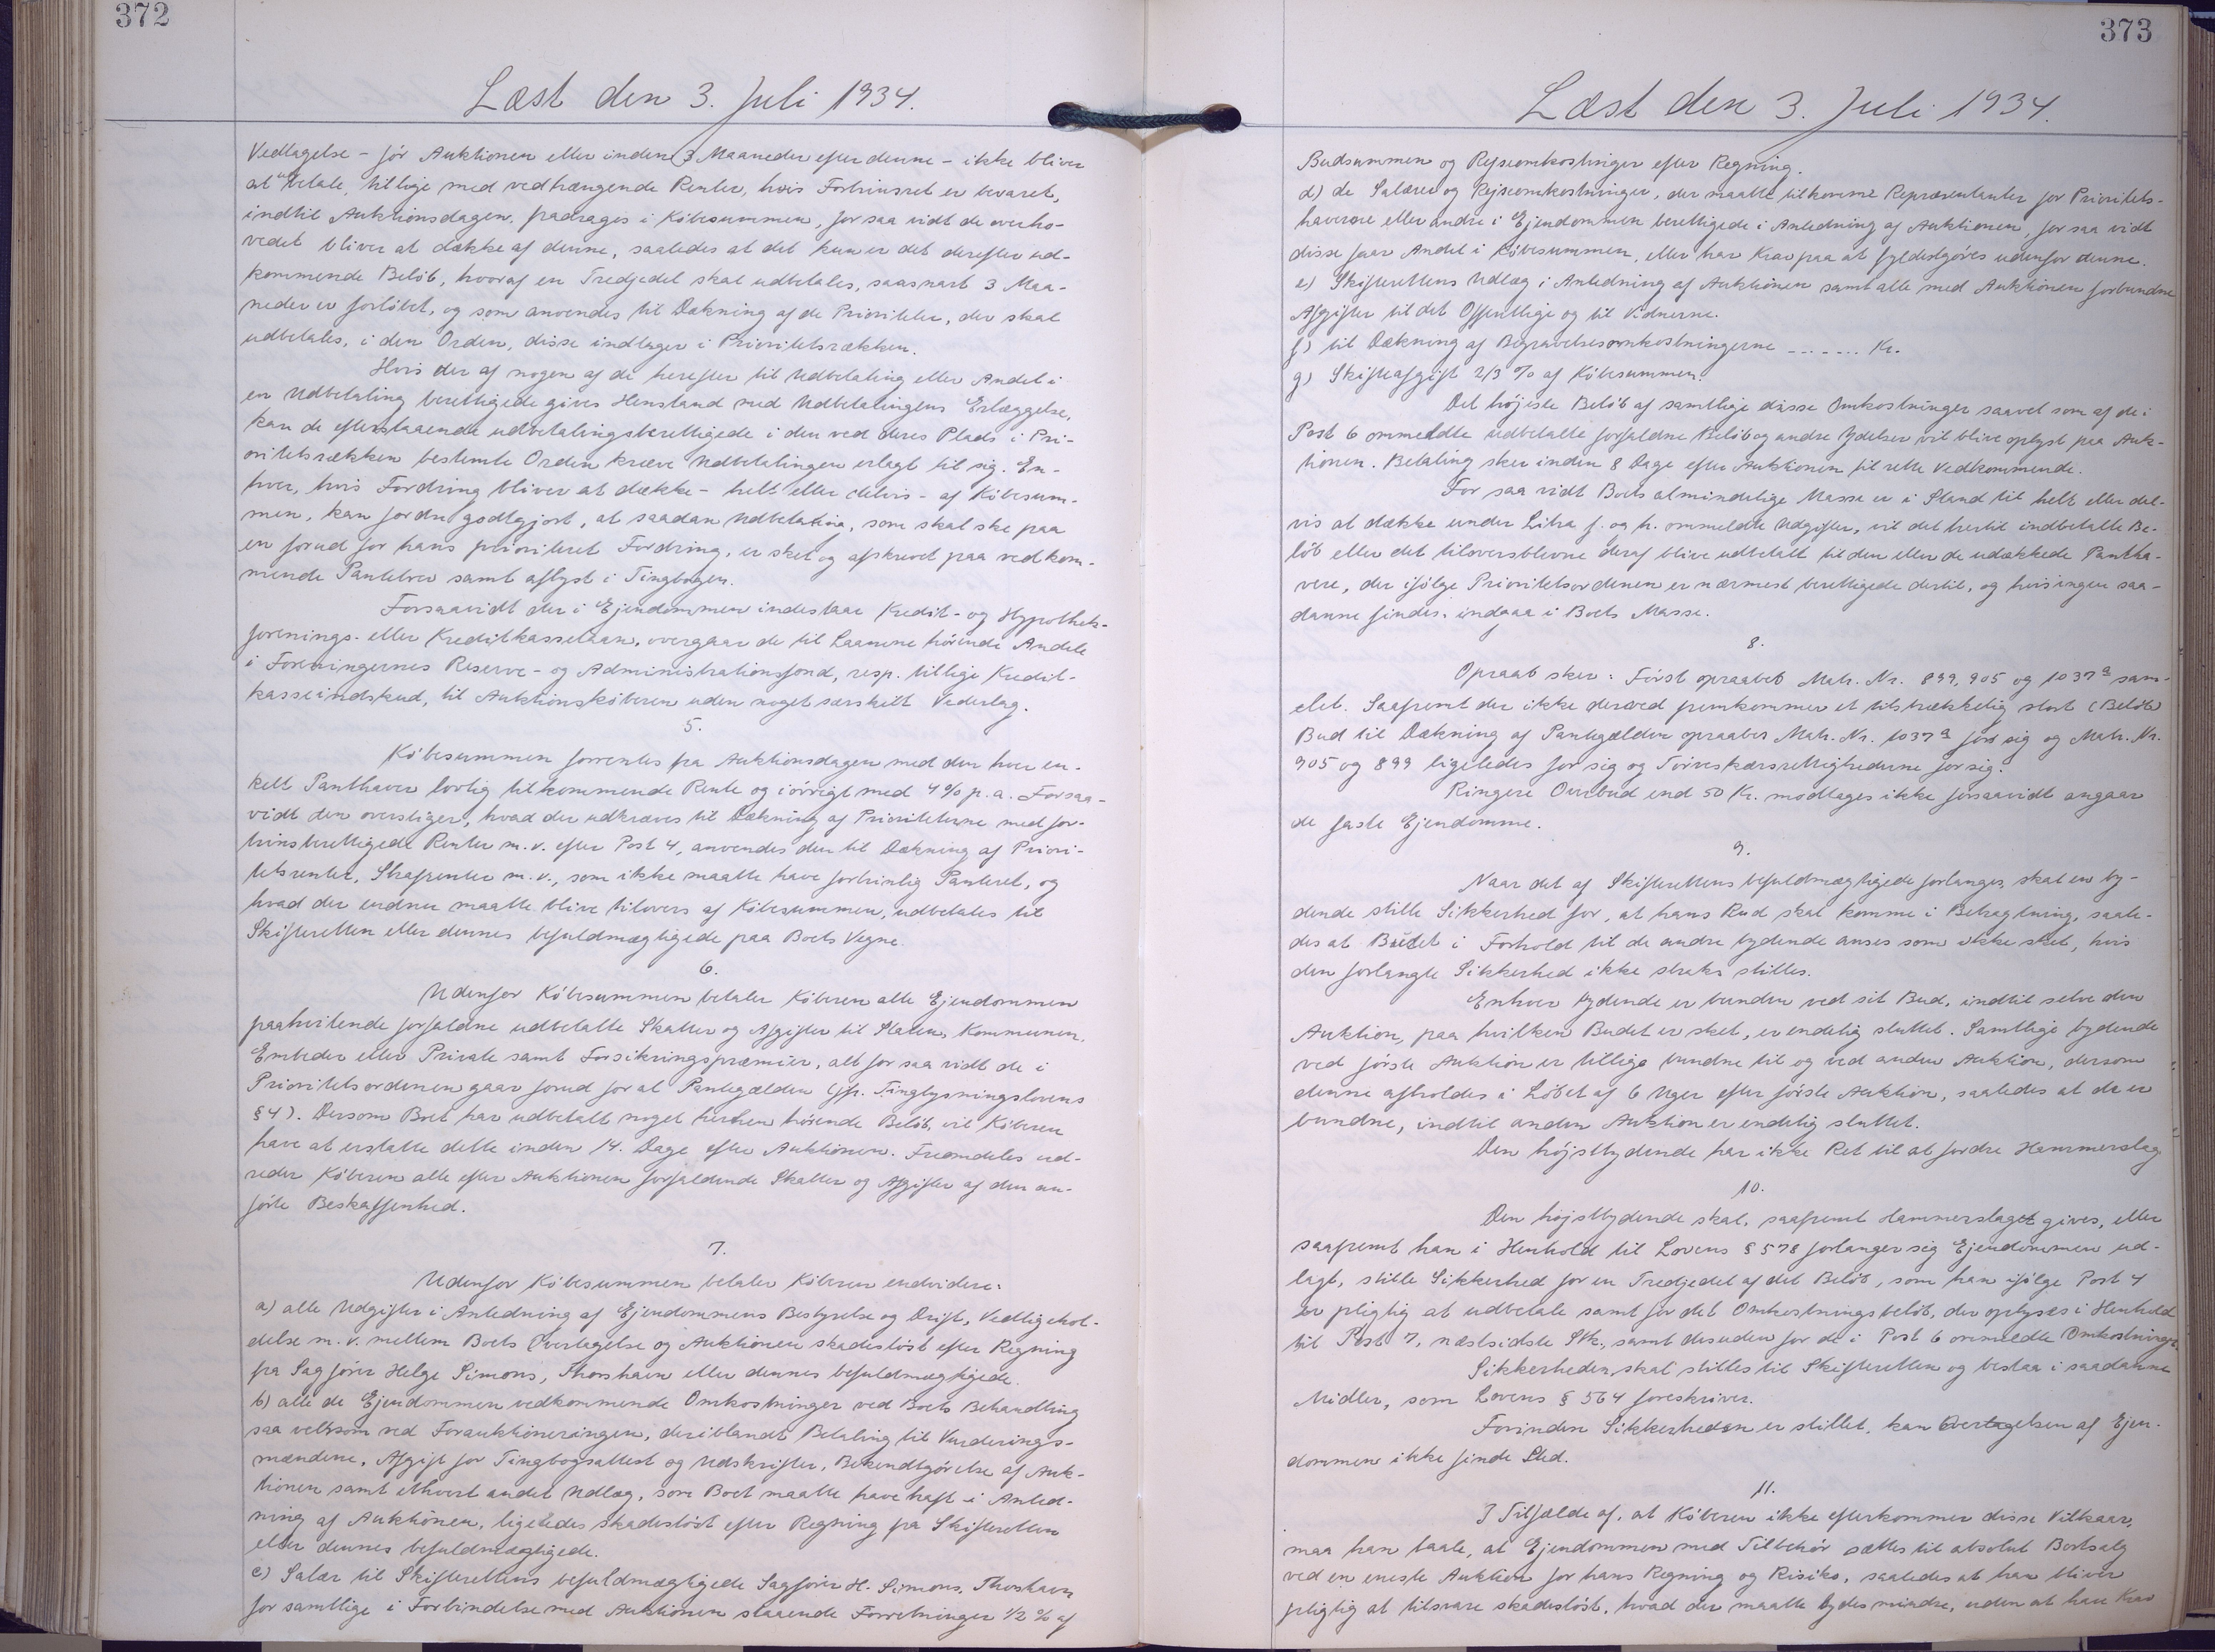 372
Læst den 3. Juli 1934.
Vedtagelse - før Auktionen eller inden 3 Maaneder efter denne - ikke bliver
at betale, tillige med vedhængende Renter, hvis Fortrinsret er bevaret,
indtil Auktionsdagen, fradrages i Købesummen, for saa vidt de overho-
vedet bliver at dække af denne, saaledes at det kun er det derefter ud-
kommende Beløb, hvoraf en Tredjedel skal udbetales, saasnart 3 Maa-
neder er forløbet, og som anvendes til Dækning af de Prioriteter, der skal
udbetales, i den Orden, disse indtager i Prioritetsrækken.
Hvis der af nogen af de herefter til Udbetaling eller Andel i
en Udbetaling berettigede gives Henstand med Udbetalingens Erlæggelse,
kan de efterstaaende udbetalingsberettigede i den ved deres Plads i Pri-
oritetsrækken bestemte Orden kræve Udbetalingen erlagt til sig. En-
hver, hvis Fordring bliver at dække - helt eller delvis - af Købesum-
men, kan fordre godtgjort, at saadan Udbetaling, som skal ske paa
en forud for hans prioriteret Fordring, er sket og afskrevet paa vedkom-
mende Pantebrev samt aflyst i Tingbogen.
Forsaavidt der i Ejendommen indestaar Kredit- og Hypothek-
forenings- eller Kreditkasselaan, overgaar de til Laanene hørende Andele
i Foreningernes Reserve- og Administrationsfond, resp. tillige Kredit-
kasseindskud, til Auktionskøberen uden noget særskilt Vederlag.
5.
Købesummen forrentes fra Auktionsdagen med den hver en-
kelt Panthaver lovlig tilkommende Rente og iøvrigt med 4% p.a. Forsaa-
vidt den overstiger, hvad der udkræves til Dækning af Prioriteterne med for-
trinsberettigede Renter m.v. efter Post 4, anvendes den til Dækning af Priori-
tetsrenter, Strafrenter m.v., som ikke maatte have fortrinlig Panteret, og
hvad der endnu maatte blive tilovers af Købesummen, udbetales til
Skifteretten eller dennes befuldmægtigede paa Boets Vegne.
6.
Udenfor Købesummen betaler Køberen alle Ejendommen
paahvilende forfaldne udbetalte Skatter og Afgifter til Staten, Kommunen,
Embeder eller Private samt Forsikringspræmier, alt for saa vidt de i
Prioritetsordenen gaar forud for al Pantegælden (jfr. Tinglysningslovens
§ 4). Dersom Boet har udbetalt noget herhen hørende Beløb, vil Køberen
have at erstatte dette inden 14. Dage efter Auktionen. Fremdeles ud-
reder Køberen alle efter Auktionen forfaldende Skatter og Afgifter af den an-
førte Beskaffenhed.
7.
Udenfor Købesummen betaler Køberen endvidere:
a) alle Udgifter i Anledning af Ejendommens Bestyrelse og Drift, Vedligehol-
delse m.v. mellem Boets Overtagelse og Auktionen skadesløst efter Regning
fra Sagfører Helge Simons, Thorshavn eller dennes befuldmægtigede.
b) alle de Ejendommen vedkommende Omkostninger ved Boets Behandling
saa vel som ved Forauktioneringen, deriblandt Betaling til Vurderings-
mændene, Afgift for Tingbogsattest og Udskrifter, Bekendtgørelse af Auk-
tionen samt ethvert andet Udlæg, som Boet maatte have haft i Anled-
ning af Auktionen, ligeledes skadesløst efter Regning fra Skifteretten
eller dennes befuldmægtigede.
c) Salær til Skifterettens befuldmægtigede Sagfører H. Simons, Thorshavn
for samtlige i Forbindelse med Auktionen staaende Forretninger 1/2 % af
373
Læst den 3. Juli 1934.
Budsummen og Rejseomkostninger efter Regning.
d) de Salærer og Rejseomkostninger, der maatte tilkomme Repræsentanter for Prioritets-
haverne eller andre i Ejendommen berettigede i Anledning af Auktionen, for saa vidt
disse faar Andel i Købesummen, eller har Krav paa at fyldestgøres udenfor denne.
e) Skifterettens Udlæg i Anledning af Auktionen samt alle med Auktionen forbundne
Afgifter til det Offentlige og til Vidnerne.
f) til Dækning af Begravelsesomkostningerne ....... Kr.
g) Skifteafgift 2/3 % af Købesummen.
Det højeste Beløb af samtlige disse Omkostninger saavel som af de i
Post 6 ommeldte udbetalte forfaldne Beløb og andre Ydelser vil blive oplyst paa Auk-
tionen. Betaling sker inden 8 Dage efter Auktionen til rette Vedkommende.
For saa vidt Boets almindelige Masse er i Stand til helt eller del-
vis at dække under Litra f. og h. ommeldte Udgifter, vil det hertil indbetalte Be-
løb eller det tiloversblevne deraf blive udbetalt til den eller de udækkede Pantha-
vere, der ifølge Prioritetsordenen er nærmest berettigede dertil, og hvis ingen saa-
danne findes, indgaa i Boets Masse.
8.
Opraab sker: Først opraabes Matr. Nr. 899, 905 og 1037a sam-
let. Saafremt der ikke derved fremkommer et tilstrækkelig stort (Beløb)
Bud til Dækning af Pantegælden opraabes Matr. Nr. 1037a for sig og Matr. Nr.
905 og 899 ligeledes for sig og Tørveskærsrettighederne for sig.
Ringere Overbud end 50 Kr. modtages ikke forsaavidt angaar
de faste Ejendomme.
9.
Naar det af Skifterettens befuldmægtigede forlanges, skal en by-
dende stille Sikkerhed for, at hans Bud skal komme i Betragtning, saale-
des at Budet i Forhold til de andre bydende anses som ikke sket, hvis
den forlangte Sikkerhed ikke straks stilles.
Enhver bydende er bunden ved sit Bud, indtil selve den
Auktion, paa hvilken Budet er sket, er endelig sluttet. Samtlige bydende
ved første Auktion er tillige bundne til og ved anden Auktion, dersom
denne afholdes i Løbet af 6 Uger efter første Auktion, saaledes at de er
bundne, indtil anden Auktion er endelig sluttet.
Den højstbydende har ikke Ret til at fordre Hammerslag
10.
Den højstbydende skal, saafremt Hammerslaget gives, eller
saafremt han i Henhold til Lovens § 578 forlanger sig Ejendommen ud-
lagt, stille Sikkerhed for en Tredjedel af det Beløb, som han ifølge Post 4
er pligtig at udbetale samt for det Omkostningsbeløb, der oplyses i Henhold
til Post 7, næstsidste Stk., samt desuden for de i Post 6 ommeldte Omkostninger.
Sikkerheden skal stilles til Skifteretten og bestaa i saadanne
Midler, som Lovens § 564 foreskriver.
Forinden Sikkerheden er stillet, kan Overtagelsen af Ejen-
dommen ikke finde Sted.
11.
I Tilfælde af, at Køberen ikke efterkommer disse Vilkaar,
maa han taale, at Ejendommen med Tilbehør sættes til absolut Bortsalg
ved en eneste Auktion for hans Regning og Risiko, saaledes at han bliver
pligtig at tilsvare skadesløst, hvad der maatte bydes mindre, uden at have Krav